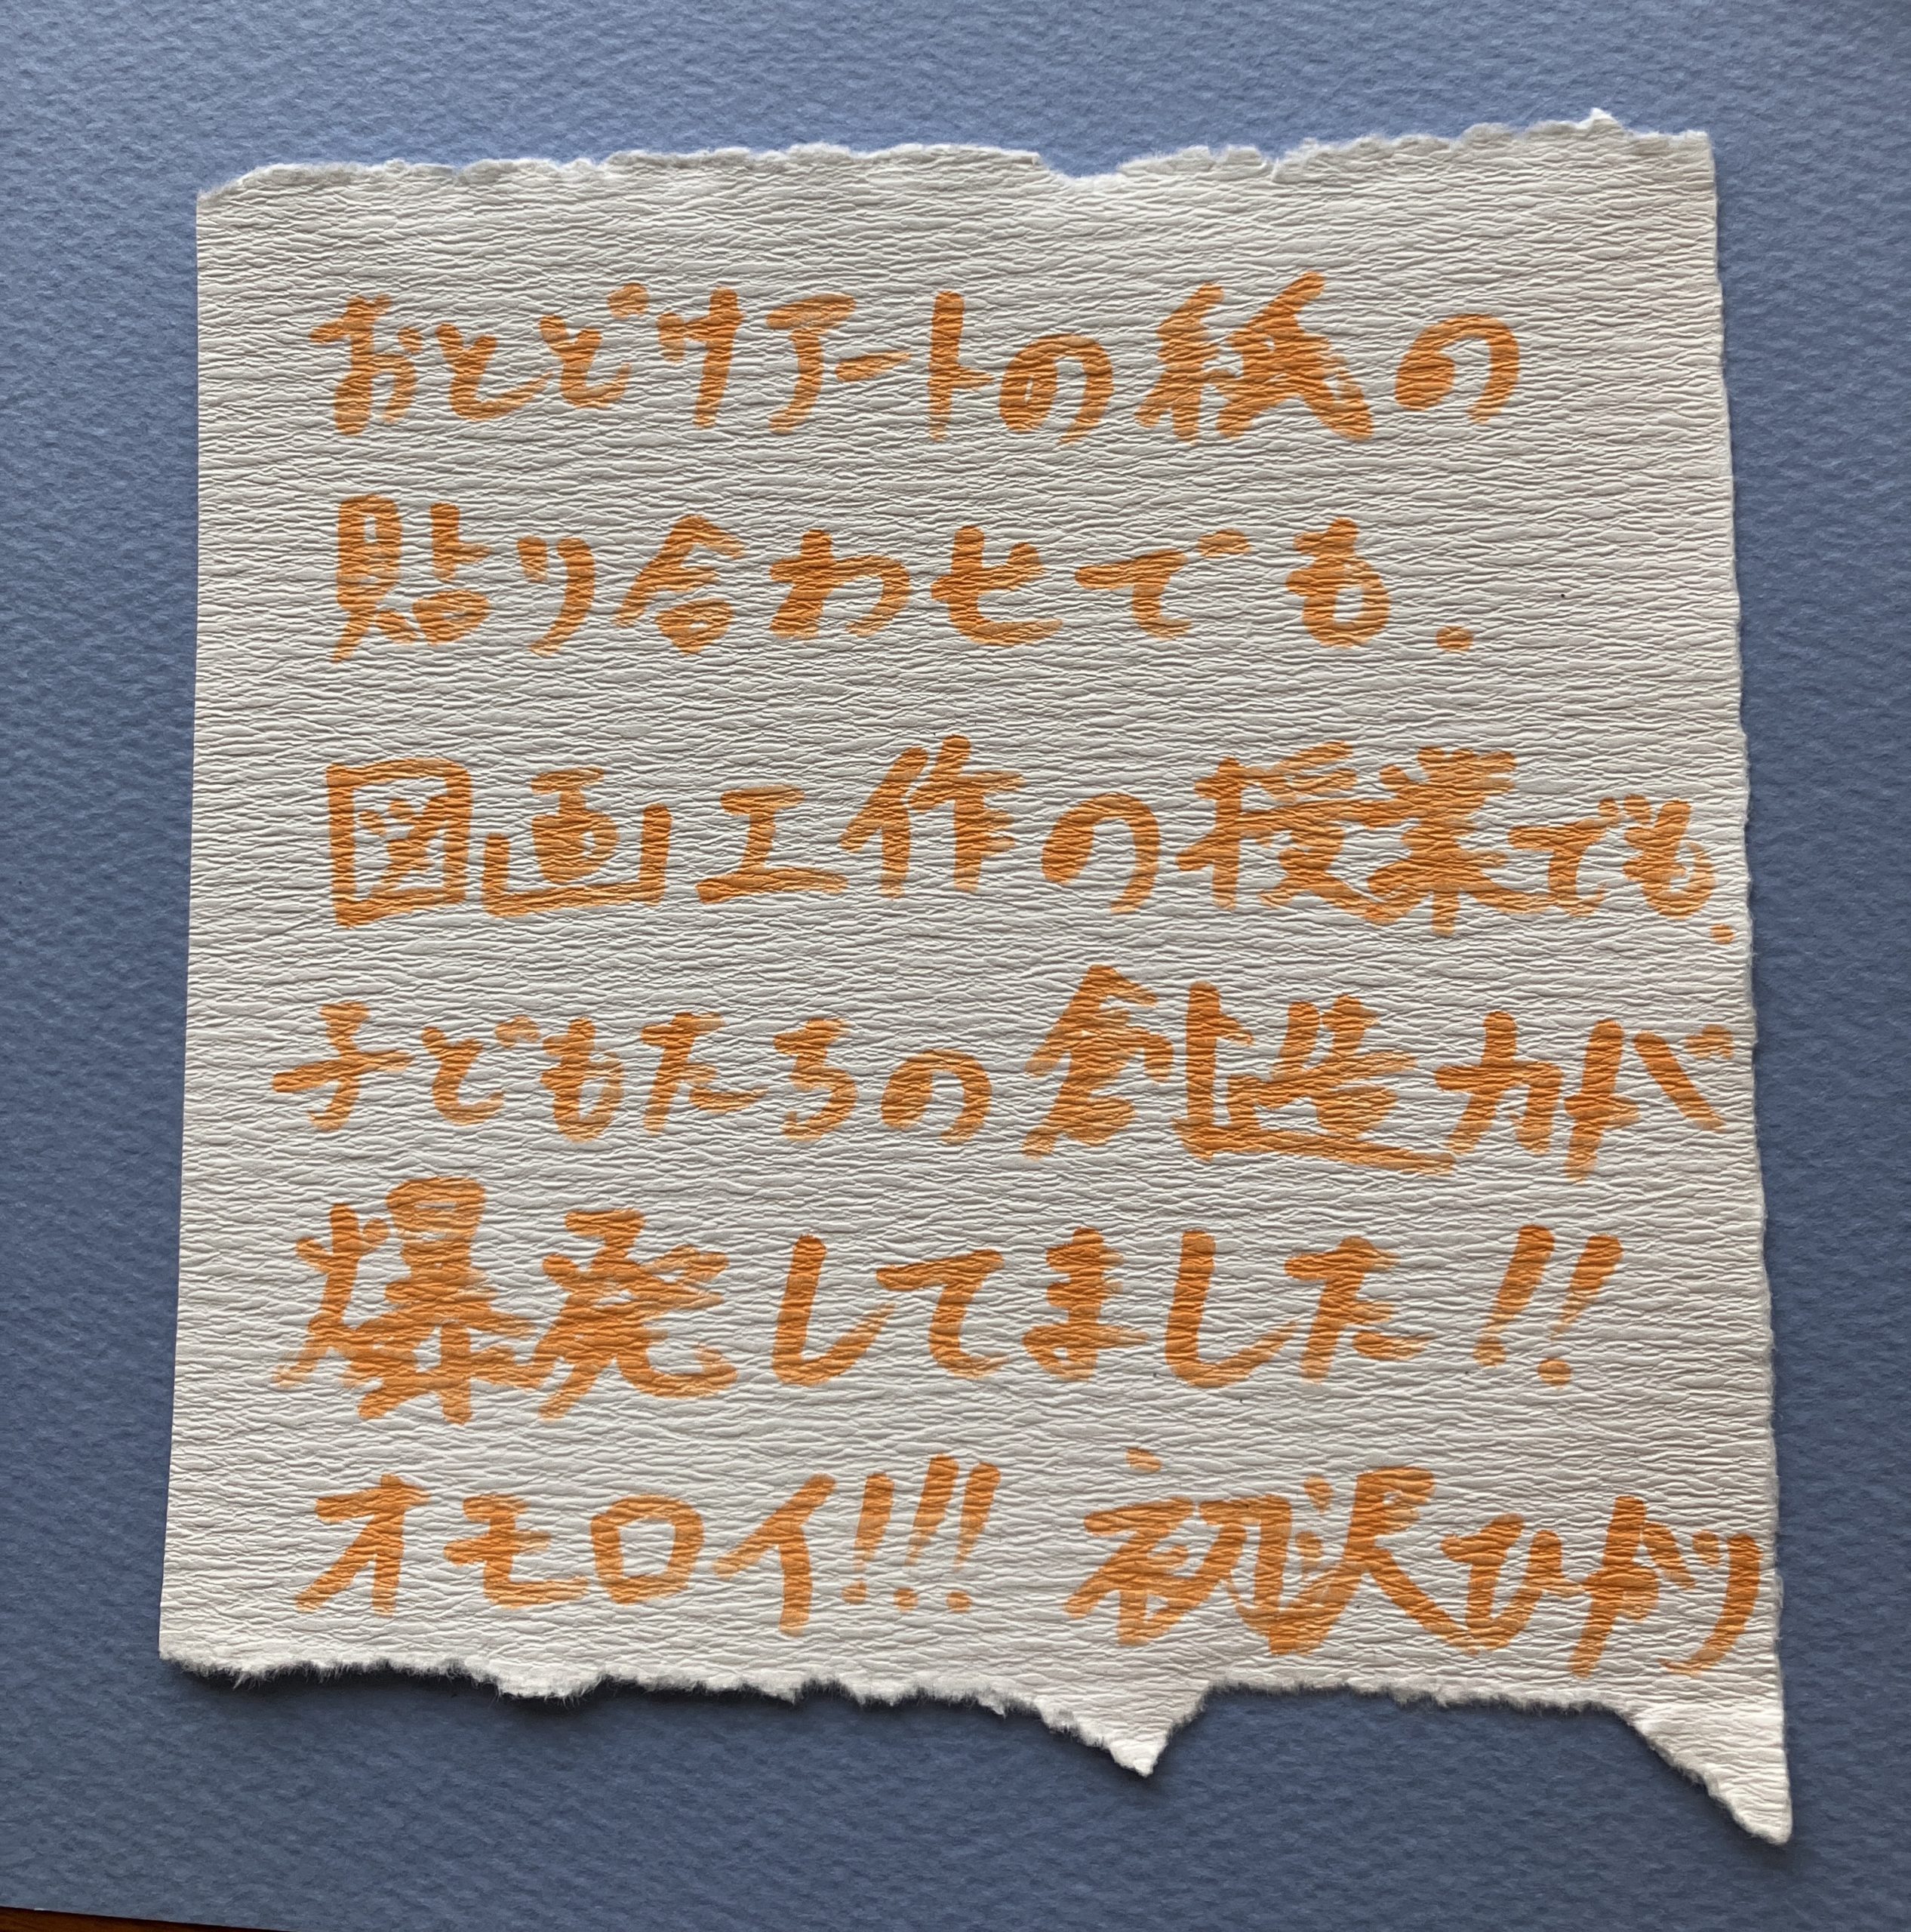 おとどけアートの紙の
貼り合わせでも.
図画工作の授業でも.
子どもたちの創造力が
爆発してました!!
オモロイ!!! 初沢ひかり